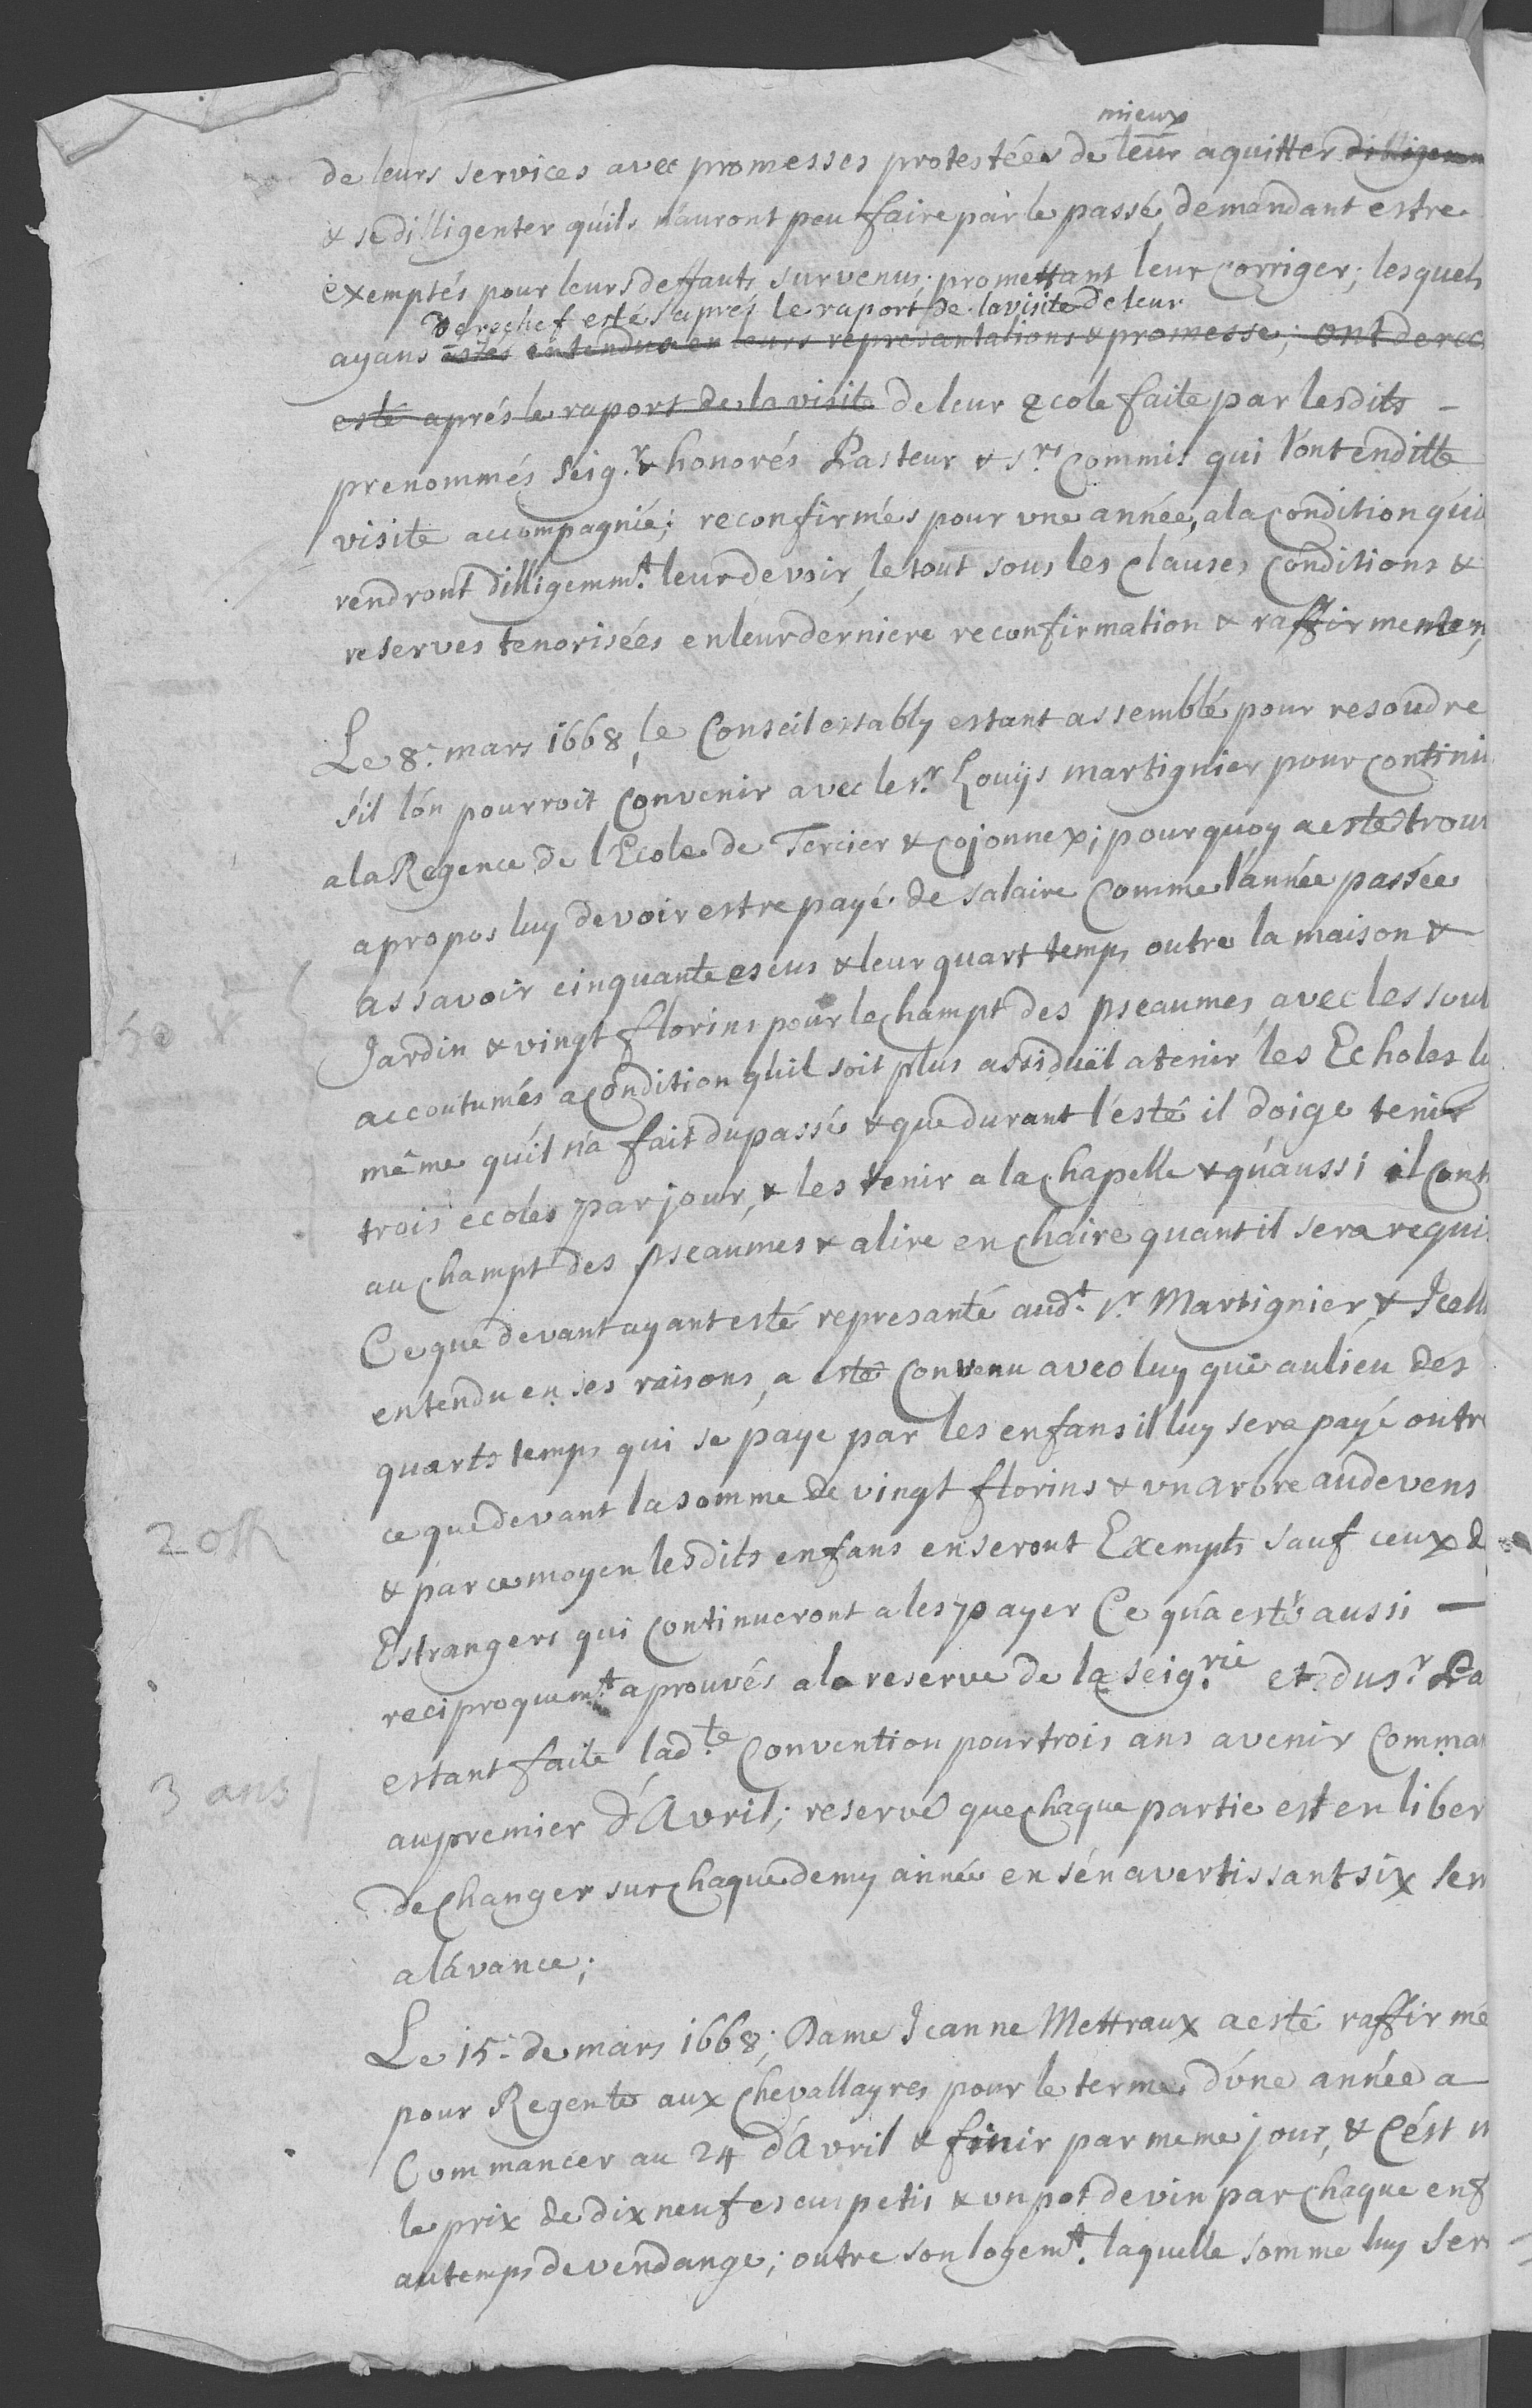 mieux
de leurs services avec promesses protestées de leur aquitter dilligem
& se dilligenter quils n'auront peu faire par le passé, demandant estre
exemptés pour leurs deffauts survenus; promettant leur corriger; lesquels
derechef estés apres le raport de la visite de leur
ayans estés entendus en leurs represantations & promesse; ont derec
esté aprés le raport de la visite de leur Ecole faite par lesdits -
prenommés Seig.r & honorés Pasteur & S.rs Commis qui l'ont enditte
visite accompagnié; reconfirmés pour une année, a la condition qui
rendront dilligemm.t leur devoir, le tout sous les clauses conditions &
reserves tenorisées en leur derniere reconfirmation & raffirmenten,
Le 8.e mars 1668, le Conseil estably estant assemblé pour resoudre
s'il l'on pourroit convenir avec le s.r Louijs Martignier pour continu
a la Regence de l'Ecole de Tercier & cojonnex; pourquoy a esté trouv
a propos luy devoir estre payé de salaire comme l'année passée
assavoir cinquante escus & leur quart temps outre la maison &
50 &
Jardin & vingt florins pour le champt des pseaumes avec les soul
accoutumés a condition qu'il soit plus assiduël a tenir les Echoles lu
même qu'il n'a fait du passé & que durant l'esté il doige tenir
trois ecoles par jour, & les tenir a la chapelle & qu'aussi il cont
au champt des pseaumes & a lire en chaire quant il sera requi
Ce que devant ayant esté represanté aud.t s.r Martignier & Icellu
entendu en ses raisons, a esté convenu avec luy que au lieu des
quarts temps qui se paye par les enfans il luy sera payé outre
ce que devant la somme de vingt florins & un arbre au devens
20 fl
& par ce moyen lesdits enfans en seront Exempts sauf ceux d
Estrangers qui continueront a les payer Ce qu'a estés aussi —
reciproquem.t aprouvés a la reserve de la Seig.rie et du s.r Pa
estant faite lad.te convention pour trois ans avenir comma
3 ans
au premier d'Avril; reservé que chaque partie est en liber
de changer sur chaque demy année en s'en avertissant six sem
a l'avance;
Le 15.e de mars 1668; Dame Jeanne Mettraux a esté raffirmé
pour Regente aux Chevallayres pour le terme d'une année a
Commancer au 24 d'Avril & finir par meme jour, & C'est
le prix de dix neuf escus petis & un pot de vin par chaque enf
au temps de vendange; outre son logem.t laquelle somme luy ser